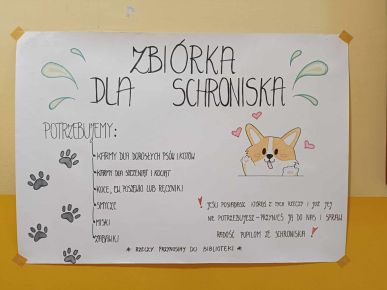 ZBIÓRKA
DLA SCHRONISKA
POTRZEBUJEMY:
KARMY DLA DOROSŁYCH PSÓW I KOTÓW
KARMY DLA SZCZENIĄT I KOCIĄT
KOCE, EW. POSZEWKI LUB RĘCZNIKI
SMYCZE
MISKI
ZABAWKI
! JEŚLI POSIADASZ KTÓRĄŚ Z TYCH RZECZY I JUŻ JEJ
NIE POTRZEBUJESZ - PRZYNIEŚ JĄ DO NAS I SPRAW
RADOŚĆ PUPILOM ZE SCHRONISKA !
* RZECZY PRZYNOSIMY DO BIBLIOTEKI *